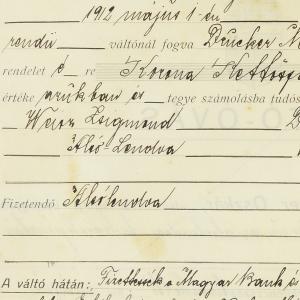 1912 május 1-én
rendü váltónál fogva Drucker
rendelet é re Korona Kettőss
értéke árukban és tegye számolásba tudós
Weisz Zsigmond
Alsó-Lendva
Fizetendő Alsólendva
A váltó hátán: Fizettessék a Magyar Bank és